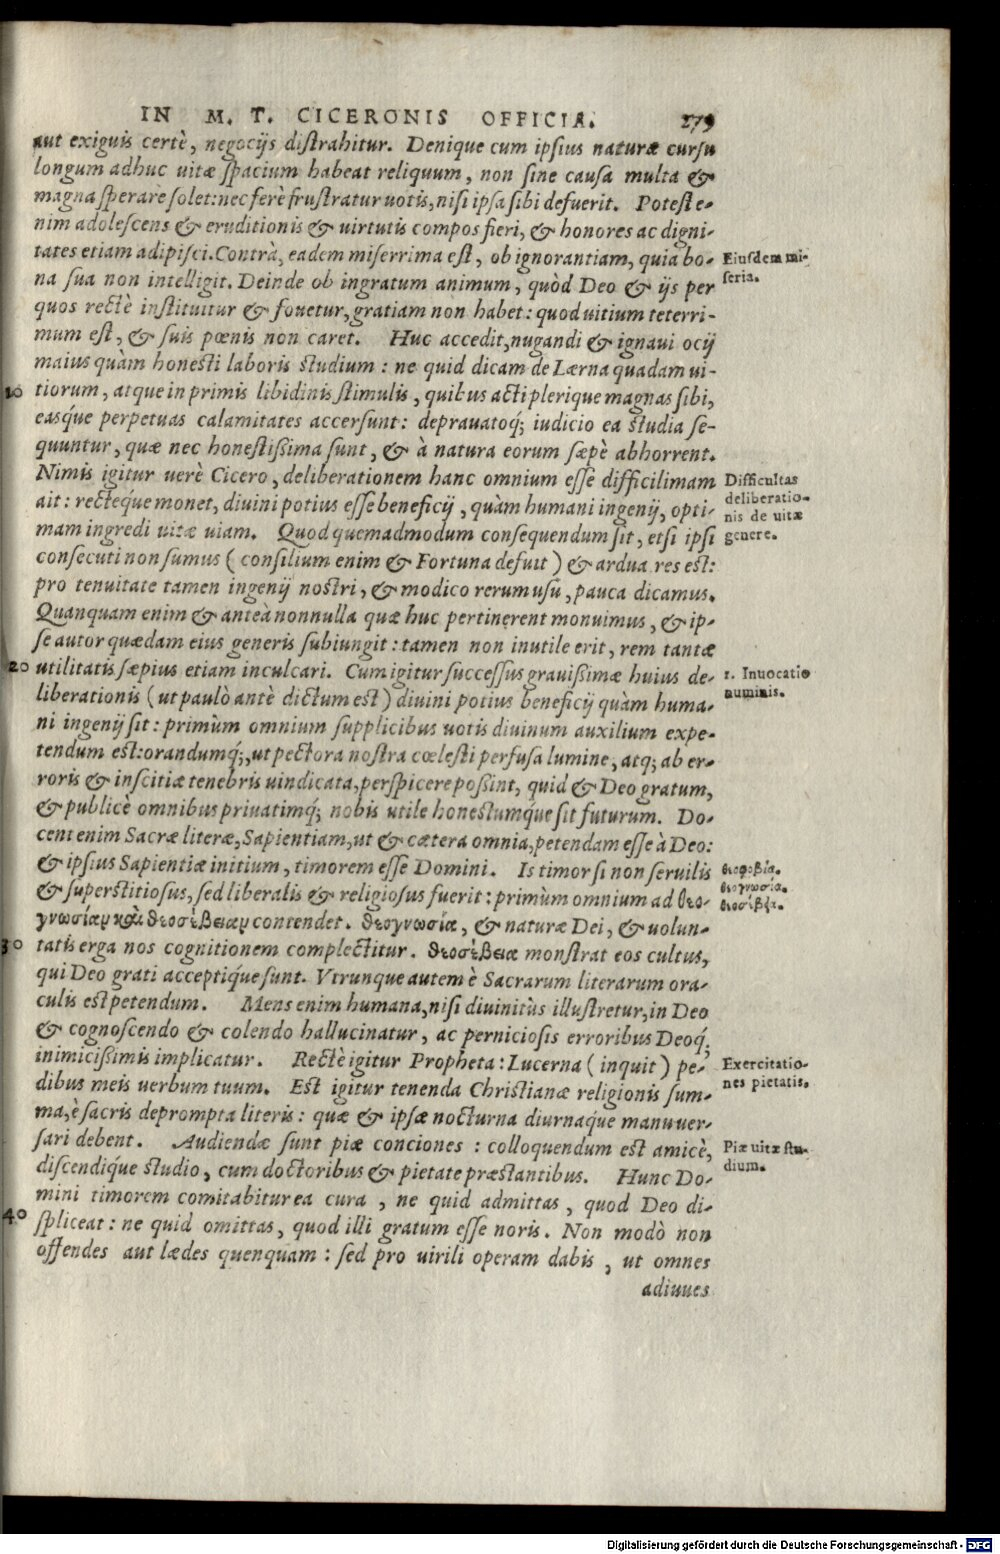 IN M. T. CICERONIS OFFICIA. 279
aut exiguis certè, negocijs distrahitur. Denique cum ipsius naturæ cursu
longum adhuc uitæ spacium habeat reliquum, non sine causa multa &
magna sperare solet: nec ferè frustratur uotis, nisi ipsa sibi defuerit. Potest e-
nim adolescens & eruditionis & uirtutis compos fieri, & honores ac digni-
tates etiam adipisci. Contrà, eadem miserrima est, ob ignorantiam, quia bo-
Eiusdem mi-
seria.
na sua non intelligit. Deinde ob ingratum animum, quòd Deo & ijs per
quos rectè instituitur & fouetur, gratiam non habet: quod uitium teterri-
mum est, & suis pœnis non caret. Huc accedit, nugandi & ignaui ocij
maius quàm honesti laboris studium: ne quid dicam de Lærna quadam ui-
10 tiorum, atque in primis libidinis stimulis, quibus acti plerique magnas sibi,
easq́ue perpetuas calamitates accersunt: deprauatoq́; iudicio ea studia se-
quuntur, quæ nec honestißima sunt, & à natura eorum sæpè abhorrent.
Nimis igitur uerè Cicero, deliberationem hanc omnium esse difficilimam
Difficultas
deliberatio-
nis de uitæ
genere.
ait: recteq́ue monet, diuini potius esse beneficij, quàm humani ingenij, opti-
mam ingredi uitæ uiam. Quod quemadmodum consequendum sit, etsi ipsi
consecuti non sumus (consilium enim & Fortuna defuit) & ardua res est:
pro tenuitate tamen ingenij nostri, & modico rerum usu, pauca dicamus.
Quanquam enim & anteà nonnulla quæ huc pertinerent monuimus, & ip-
se autor quædam eius generis subiungit: tamen non inutile erit, rem tantæ
20 utilitatis sæpius etiam inculcari. Cum igitur successus grauißimæ huius de-
1. Inuocatio
numinis.
liberationis (ut paulò antè dictum est) diuini potius beneficij quàm huma-
ni ingenij sit: primùm omnium supplicibus uotis diuinum auxilium expe-
tendum est: orandumq́;, ut pectora nostra cœlesti perfusa lumine, atq; ab er-
roris & inscitiæ tenebris uindicata, perspicere poßint, quid & Deo gratum,
& publicè omnibus priuatimq́; nobis utile honestumq́ue sit futurum. Do-
cent enim Sacræ literæ, Sapientiam, ut & cætera omnia, petendam esse à Deo:
& ipsius Sapientiæ initium, timorem esse Domini. Is timor si non seruilis
θεοφοβία.
θεογνωσία.
θεοσέβεια.
& superstitiosus, sed liberalis & religiosus fuerit: primùm omnium ad θεο-
γνωσίαν καὶ θεοσέβειαν contendet. θεογνωσία, & naturæ Dei, & uolun-
30 tatis erga nos cognitionem complectitur. θεοσέβεια monstrat eos cultus,
qui Deo grati acceptiq́ue sunt. Vtrunque autem è Sacrarum literarum ora-
culis est petendum. Mens enim humana, nisi diuinitùs illustretur, in Deo
& cognoscendo & colendo hallucinatur, ac perniciosis erroribus Deoq́;
inimicißimis implicatur. Rectè igitur Propheta: Lucerna (inquit) pe-
Exercitatio-
nes pietatis.
dibus meis uerbum tuum. Est igitur tenenda Christianæ religionis sum-
ma, è sacris deprompta literis: quæ & ipsæ nocturna diurnaque manu uer-
sari debent. Audiendæ sunt piæ conciones: colloquendum est amicè,
Piæ uitæ stu-
dium.
discendiq́ue studio, cum doctoribus & pietate præstantibus. Hunc Do-
mini timorem comitabitur ea cura, ne quid admittas, quod Deo di-
40 spliceat: ne quid omittas, quod illi gratum esse noris. Non modò non
offendes aut lædes quenquam: sed pro uirili operam dabis, ut omnes
adiuues
Digitalisierung gefördert durch die Deutsche Forschungsgemeinschaft - DFG